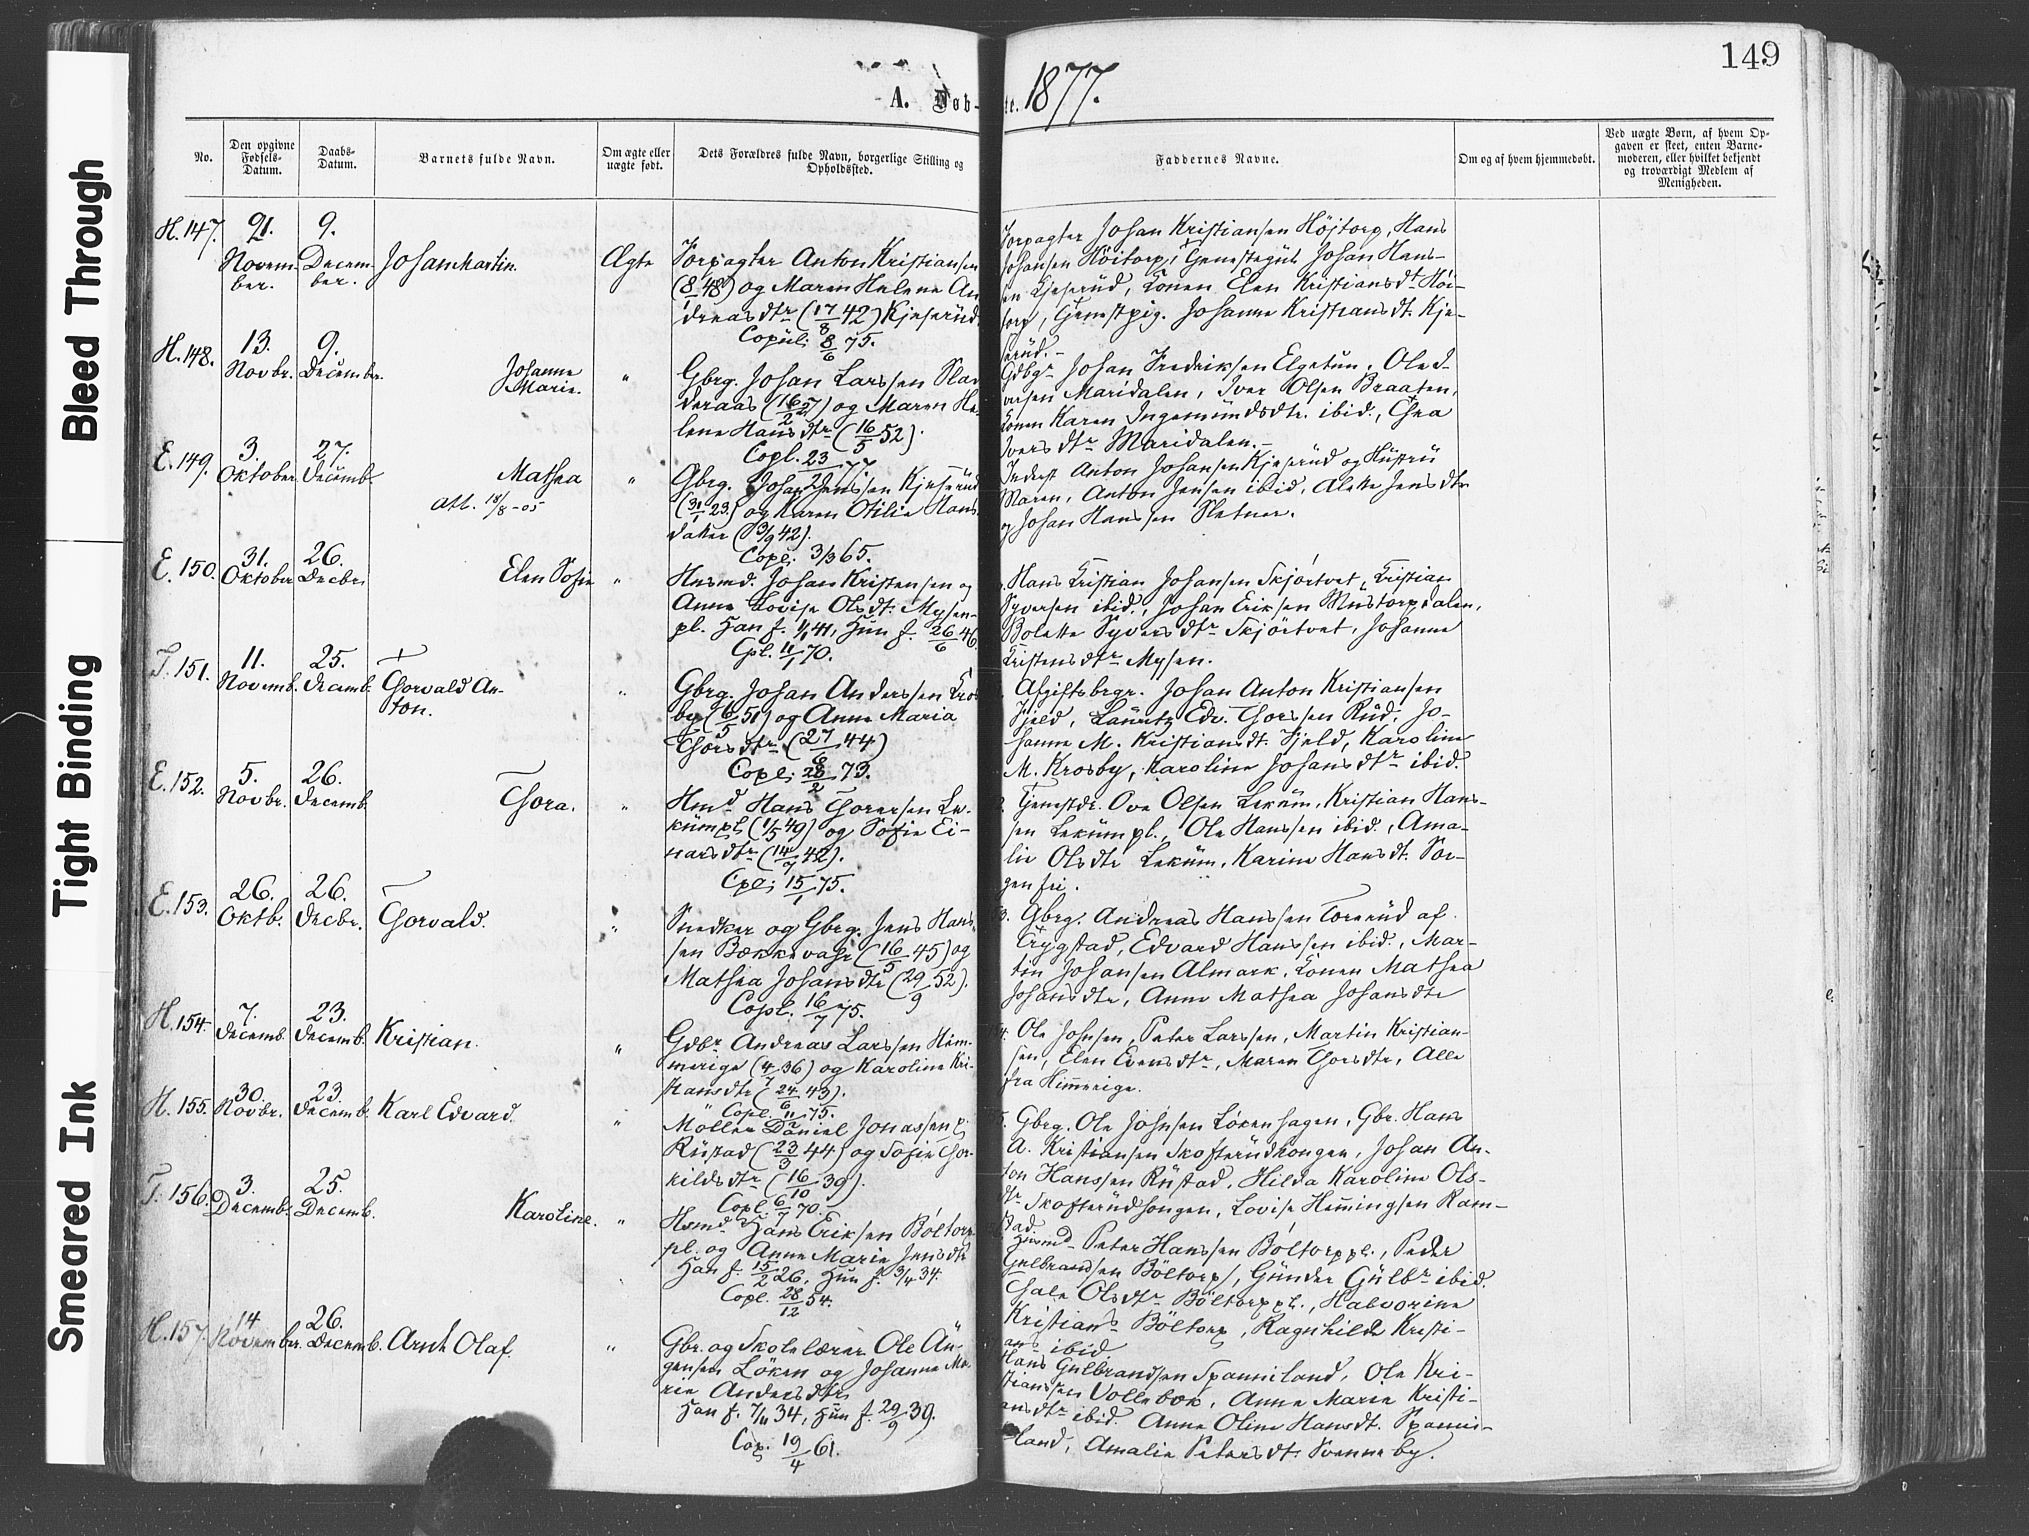 149
A. Døb-
te. 1877.
No.
Den opgivne Fødsels-Datum.
Daabs-Datum.
Barnets fulde Navn.
Om ægte eller uægte født.
Dets Forældres fulde Navn, borgerlige Stilling og Opholdssted.
Faddernes Navne.
Om og af hvem hjemmedøbt.
Ved uægte Børn, af hvem Op-
gaven er skeet, enten Barne-
moderen, eller hvilket bekjendt
og troværdigt Medlem af
Menigheden.
Bleed Through
Tight Binding
Smeared Ink
H. 147. 21. 9.
Novem- Decem- Johan Martin. Ægte Forpagter Anton Kristiansen
ber. ber. " (8/1 48) og Maren Helene An-
dreasdtr (17/8 42) Kjeserüd.
Copül: 8/6 75.
Forpagter Johan Kristiansen Höjtorp, Hans
Johansen Höitorp, Tjenestegüt Johan Hans-
sen Kjeserüd, Konen Elen Kristiansdt. Höi-
torp, Tjenestpig. Johanne Kristiansdt. Kje-
serüd.-
H. 148. 13. 9.
Novbr. Decembr. Johanne
Marie. " Gbrg. Johan Larssen Slav-
deraas (16/2 27) og Maren He-
lene Hansdtr (16/5 52).
Copl. 23/2 77.
Gdbgr Johan Fredriksen Elgetun, Ole I-
versen Maridalen, Iver Olsen Braaten,
Konen Karen Ingemündsdtr. ibid., Thea
Iversdtr Maridalen.-
E. 149. 3. 27.
Oktober Decemb. Mathea
att. 18/8-05 " Gbrg. Johan Jenssen Kjeserüd
(31/1 23.) og Karen Otilie Hans-
datter (3/9 42).
Copl: 3/3 65.
Inderst Anton Johansen Kjeserüd og Hüstrü
Maren, Anton Jensen ibid, Alette Jensdtr
og Johan Hanssen Sletner.
E. 150. 31. 26.
Oktober Decbr. Elen Sofie " Husmd. Johan Kristensen og
Anne Lovise Olsdt. Mysen-
pl. Han f. 1/1 41, Hün f. 26/6 46.
Cpl. 11/1 70.
Hans Kristian Johansen Skjörtvet, Kristian
Syversen ibid., Johan Eriksen Müstorpdalen,
Bolette Syversdtr Skjörtvet, Johanne
Kristensdtr Mysen.
T. 151. 11. 25.
Novemb. Decemb. Thorvald An-
ton. " Gbrg. Johan Anderssen Kros-
by (6/5 51) og Anne Maria
Thorsdtr. (27/6 44)
Copl; 28/2 73.
Afgiftsbrgr. Johan Anton Kristiansen
Fjeld, Lauritz Edv. Thorssen Rüd, Jo-
hanne M. Kristiansdt. Fjeld, Karoline
M. Krosby, Karoline Johansdtr ibid.
E. 152. 5. 26.
Novbr. Decemb. Thora. " Hmd Hans Thoressen Le-
kümpl. (1/5 49) og Sofie Ei-
narsdtr (14/7 42).
Cpl; 15/1 75.
Tjenestdr. Ove Olsen Leküm, Kristian Hans-
sen Lekümpl., Ole Hanssen ibid., Ama-
lie Olsdtr Leküm, Karine Hansdt. Sor-
genfri.
E. 153. 26. 26.
Oktb. Decbr. Thorvald. " Snedker og Gbrg. Jens Hans-
sen Bækkevahr (16/5 45) og
Mathea Johansdtr (29/9 52).
Copl. 16/7 75.
Gbrg. Andreas Hanssen Torerüd af
Trygstad, Edvard Hanssen ibid., Mar-
tin Johansen Almark, Konen Mathea
Johansdtr, Anne Mathea Johansdtr
H. 154. 7. 23.
Decemb. Decemb. Kristian. " Gdbr Andreas Larssen Him-
merige (4/7 36) og Karoline Kri-
stiansdtr (24/6 43).
Copl. 75.
Ole Johnsen, Peter Larssen, Martin Kristian-
sen, Elen Evensdtr, Maren Thorsdtr, Alle
fra Himmerige.
H. 155. 30. 23.
Novbr. Decemb. Karl Edvard. " Møller Daniel Jonassen
Rüstad (23/3 44) og Sofie Thor-
kildsdtr (16/10 39).
Copl. 6/1 70.
Gbrg. Ole Johnsen Lökenhagen, Gbr. Hans
A. Kristiansen Skofterüdhongen, Johan An-
ton Hanssen Rüstad, Hilda Karoline Ols-
dtr Skofterüdhongen, Lovise Hemmingsen Ram-
stad
T. 156. 3. 25.
Decemb. Decemb. Karoline. " Hsmd Hans Eriksen Böltorp-
pl. og Anne Marie Jensdtr
Han f. 15/2 26, Hün f. 3/4 34.
Copl. 28/12 54.
Husmd Peter Hanssen Böltorppl., Peder
Gulbrandsen Böltorp, Günder Gülbr ibid.
Thale Olsdtr Böltorppl., Halvorine
Kristians Böltorp, Ragnhilde Kristi-
ans ibid.
H. 157. 14 26.
November. Decemb. Arnt Olaf. " Gbr. og Skolelærer Ole Aü-
gensen Löken og Johanne Ma-
rie Andersdtr
Han f. 7/11 34, Hün f. 29/9 39.
Cop. 19/4 61.
Hans Gulbrandsen Spanniland, Ole Kri-
stiansen Vollebæk, Anne Marie Kristi-
ansdtr ibid. Anne Oline Hansdt. Spanni-
land, Amalie Petersdt. Svenneby.